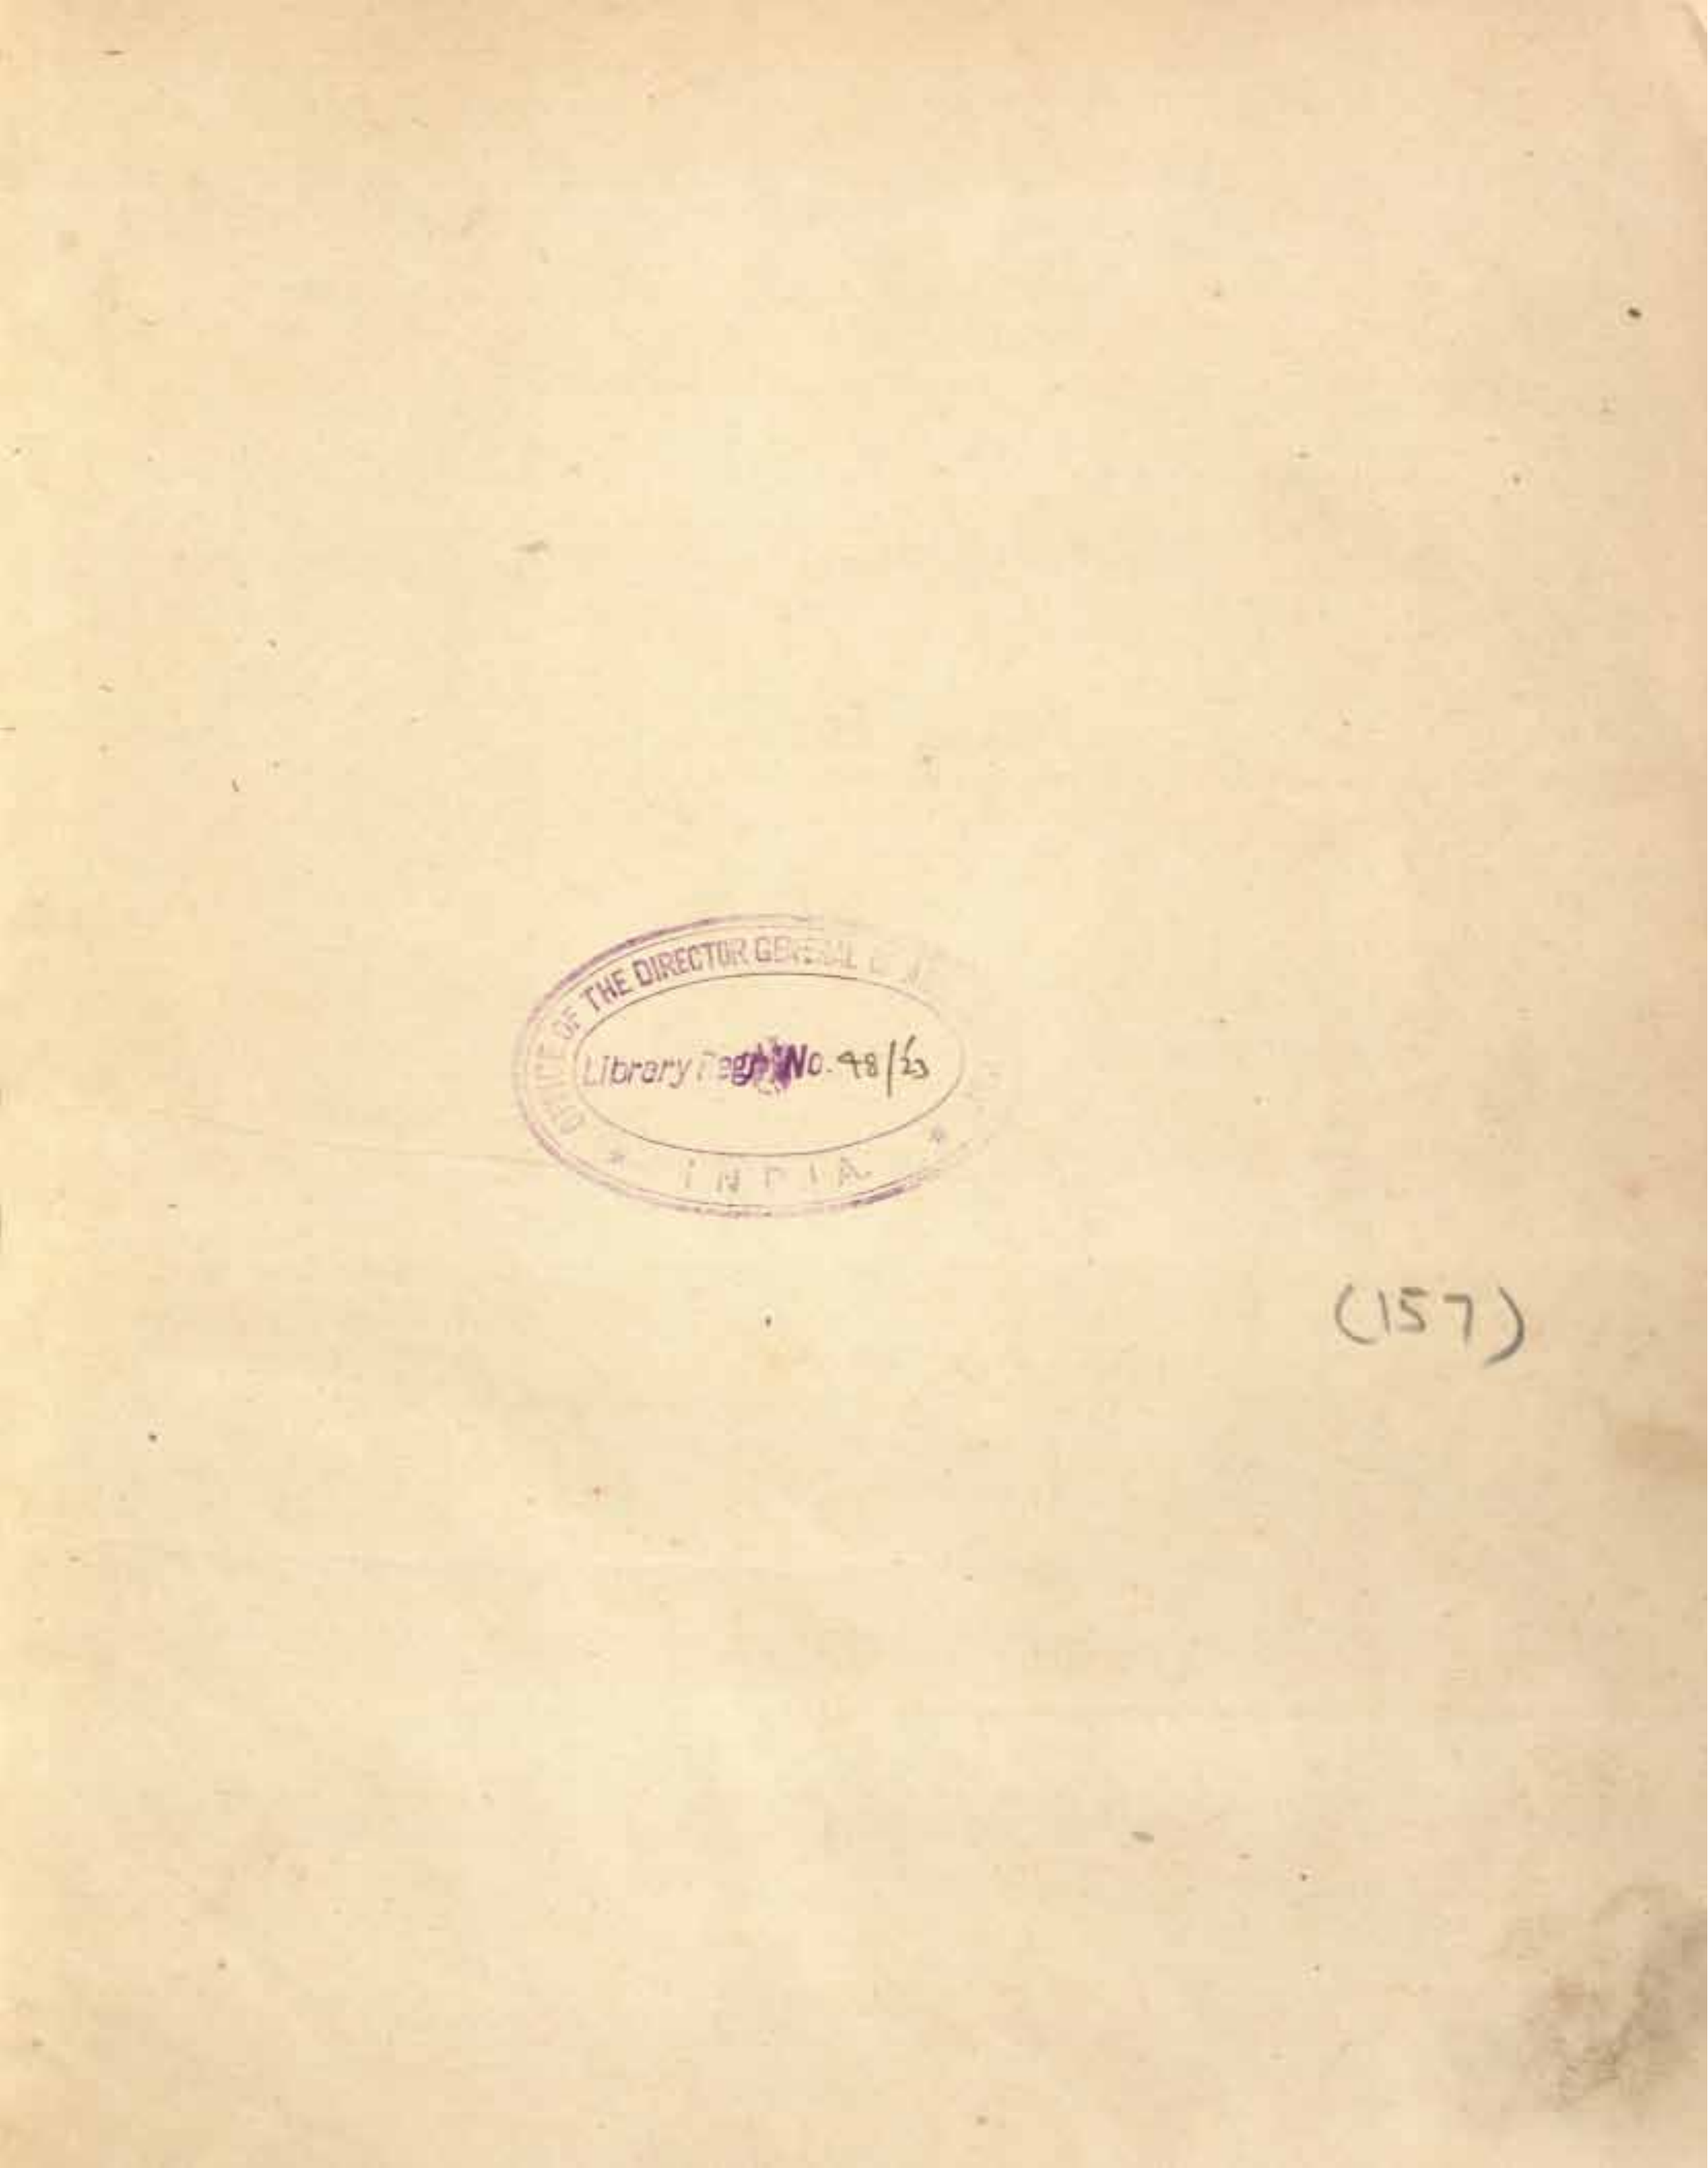 OFFICE OF THE DIRECTOR GENERAL
Library Regr No. 48/23
INDIA
(157)